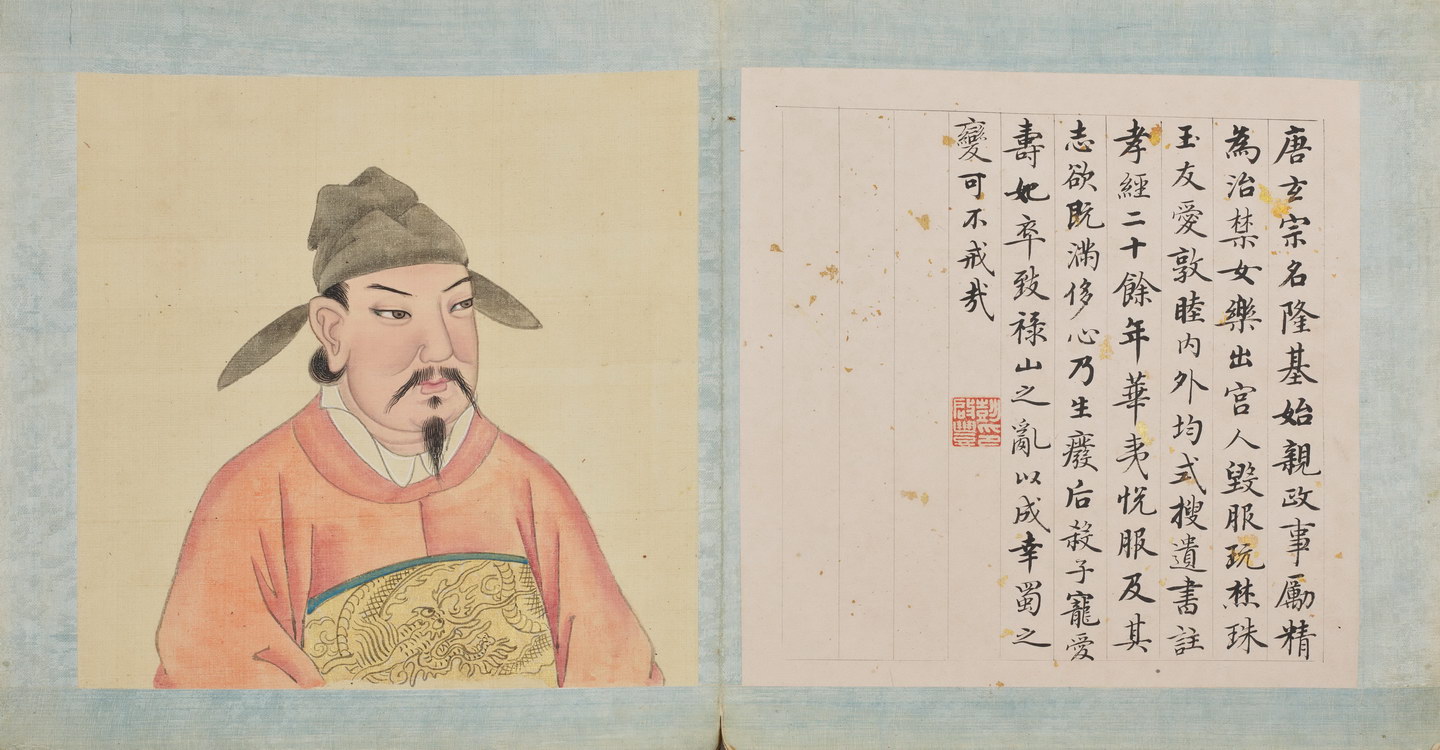 唐玄宗名隆基始親政事勵精
為治禁女樂出宮人毀服玩焚珠
玉友愛敦睦內外均式搜遺書註
孝經二十餘年華夷悅服及其
志欲既滿侈心乃生癈后殺子寵愛
壽妃卒致祿山之亂以成幸蜀之
變可不戒哉
彭印啟豐